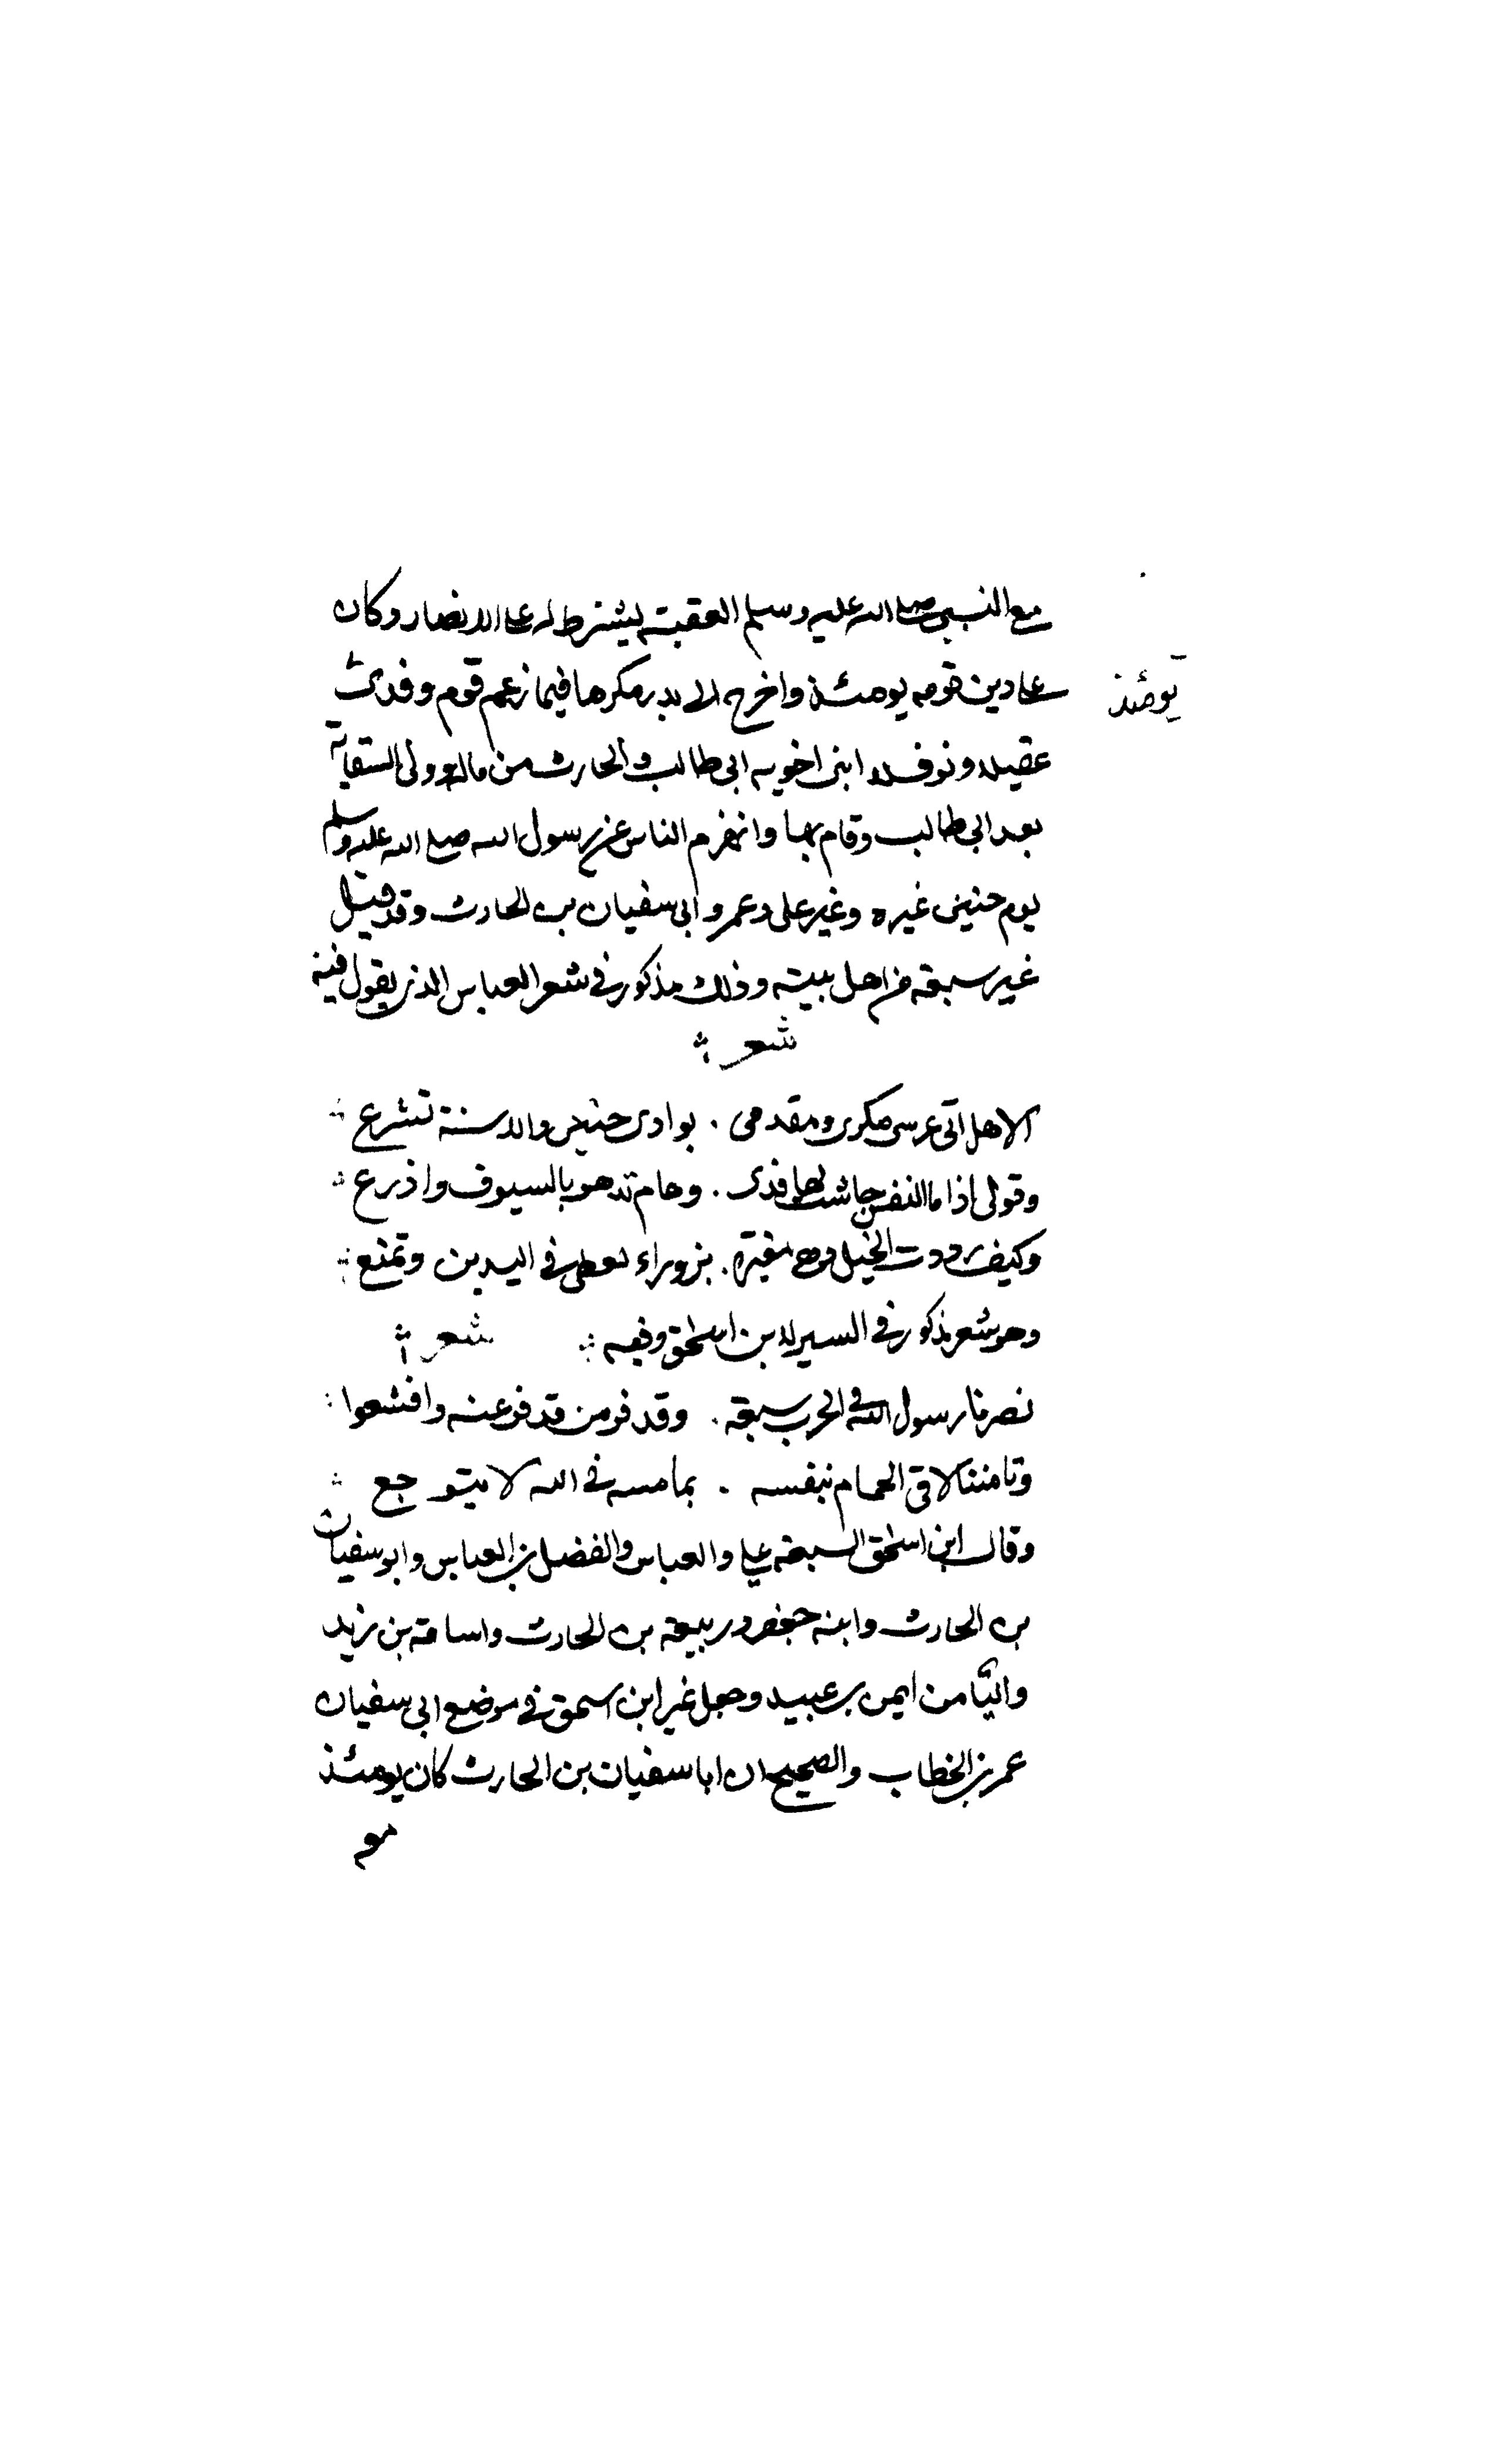 مع النبي صلى الله عليه وسلم العقبة ليشترط له على الانصار وكان
على دين قومه يومئذ واخرج الى بدر مكرها فيما زعم قوم وفدى
يومئذ
عقيلا ونوفلا ابني اخويه ابي طالب والحارث من ماله وولى السقاية
بعد ابي طالب وقام بها وانهزم الناس عن رسول الله صلى الله عليه وسلم
يوم حنين غيره وغير على وعمر وابى سفيان بن الحارث وقد قيل
غير سبعة من اهل بيته وذلك مذكور في شعر العباس الذي يقول فيه
شعر
الا هل اتى عرسى مكرى ومقدمى . بوادى حنين والاسنة تشرع
وقولى اذا ما النفس جاشت لها قدى . وهام تدهو بالسيوف واذرع
وكيف رددت الخيل وهى مغيرة . بزوراء تعطى في اليدين وتمنع
وهو شعر مذكور في السير لابن اسحق وفيه شعر
نصرنا رسول الله في الحرب سبعة . وقد فر من قد فر عنه واقشعوا
وثامننا لاقى الحمام بنفسه . بما مسه في الله لا يتوجع
وقال ابن اسحق السبعة على والعباس والفضل بن العباس وابو سفيان
بن الحارث وابنه جعفر وربيعة بن الحارث واسامة بن زيد
والثامن ايمن بن عبيد وجعل غير ابن اسحق في موضع ابى سفيان
عمر بن الخطاب والصحيح ان ابا سفيان بن الحارث كان يومئذ
معه